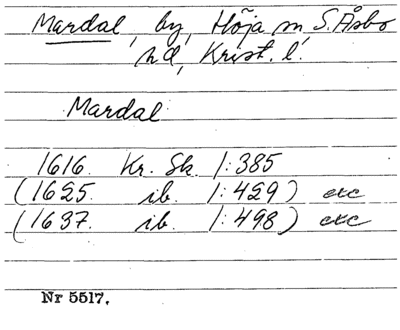 Mardal, by, Höja sn, S. Åsbo
hd, Krist. l.
Mardal
1616. Kr. Sk. 1:385
(1625. ib. 1:429) exc
(1637. ib. 1:498) exc
Nr 5517.